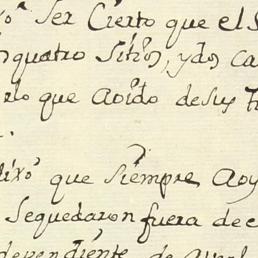 ser Cierto que el S
quatro Sitios, y dos Ca
que a oido de sus
dixo que siempre a oy
se quedaron fuera de
dependiente de